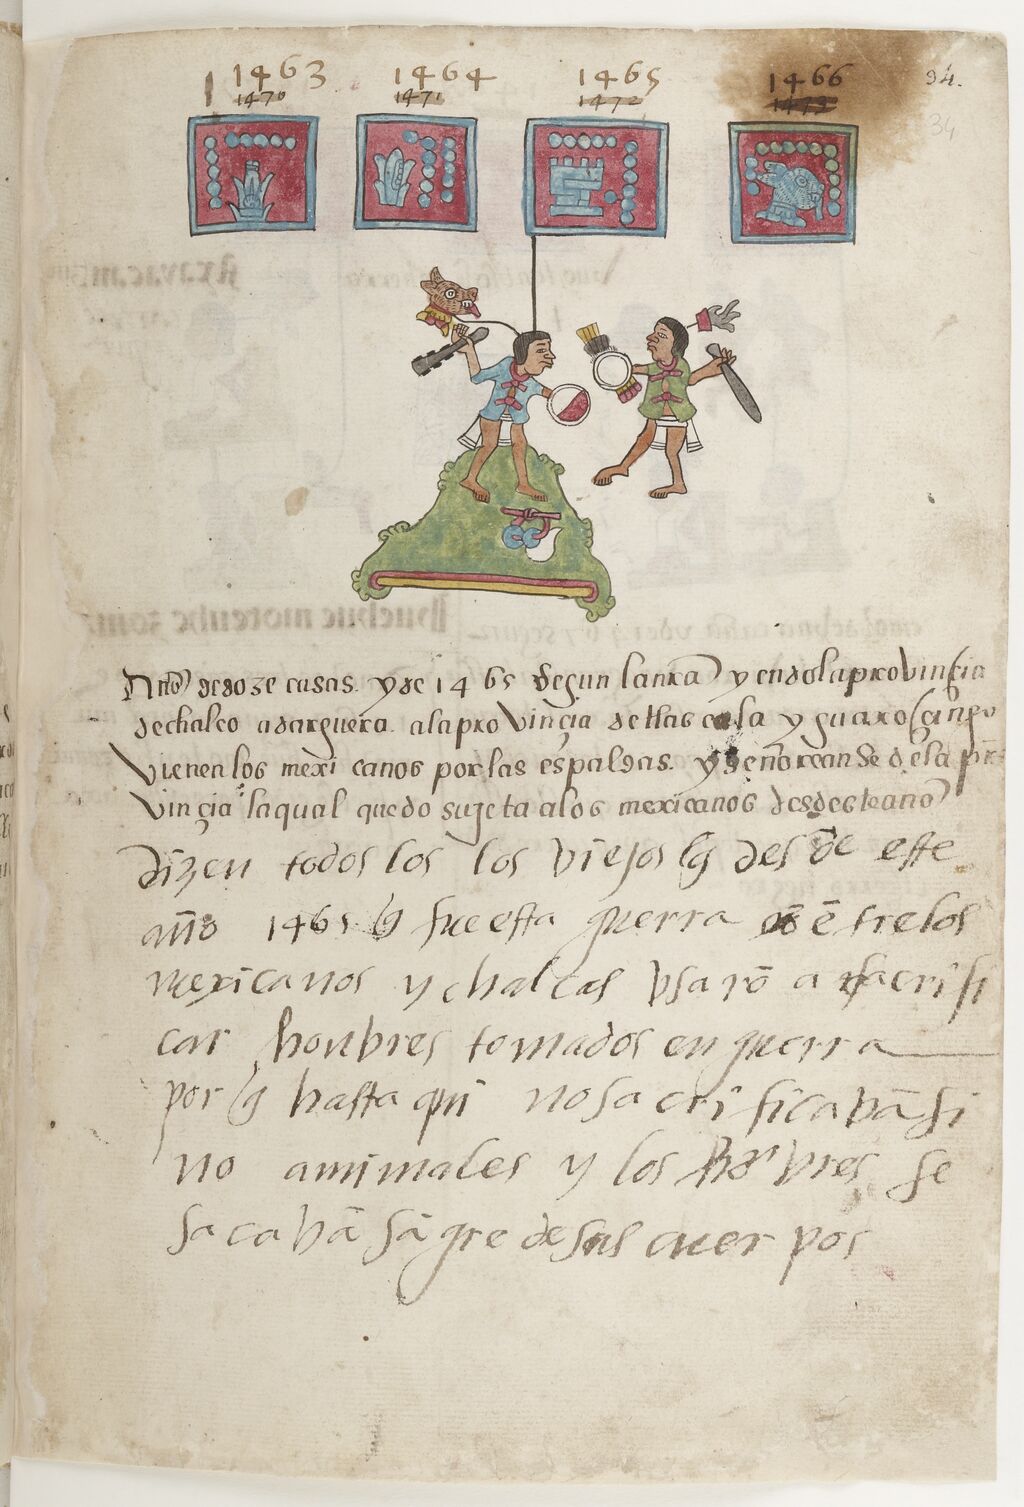 1463 1464 1465 1466 94.
1470 1471 1472 1473 34
Año de doze casas. y de 1465 segun la nr̃a yendo la provinçia
de chalco a dar guerra. a la provinçia de tlaxcala y guaxoçingo
vienen los mexicanos por las espaldas. y señorean se de la pro
vinçia laqual quedo sujeta a los mexicanos desde ste año
dizen todos los los viejos q̃ des de este
año 1465 q̃ fue esta guerra ẽtre los
mexicanos y chalcas vsarõ a sacrifi
car honbres tomados en guerra
por q̃ hasta qui no sacrificavã si
no animales y los honbres se
sacavã sãgre de sus cuerpos